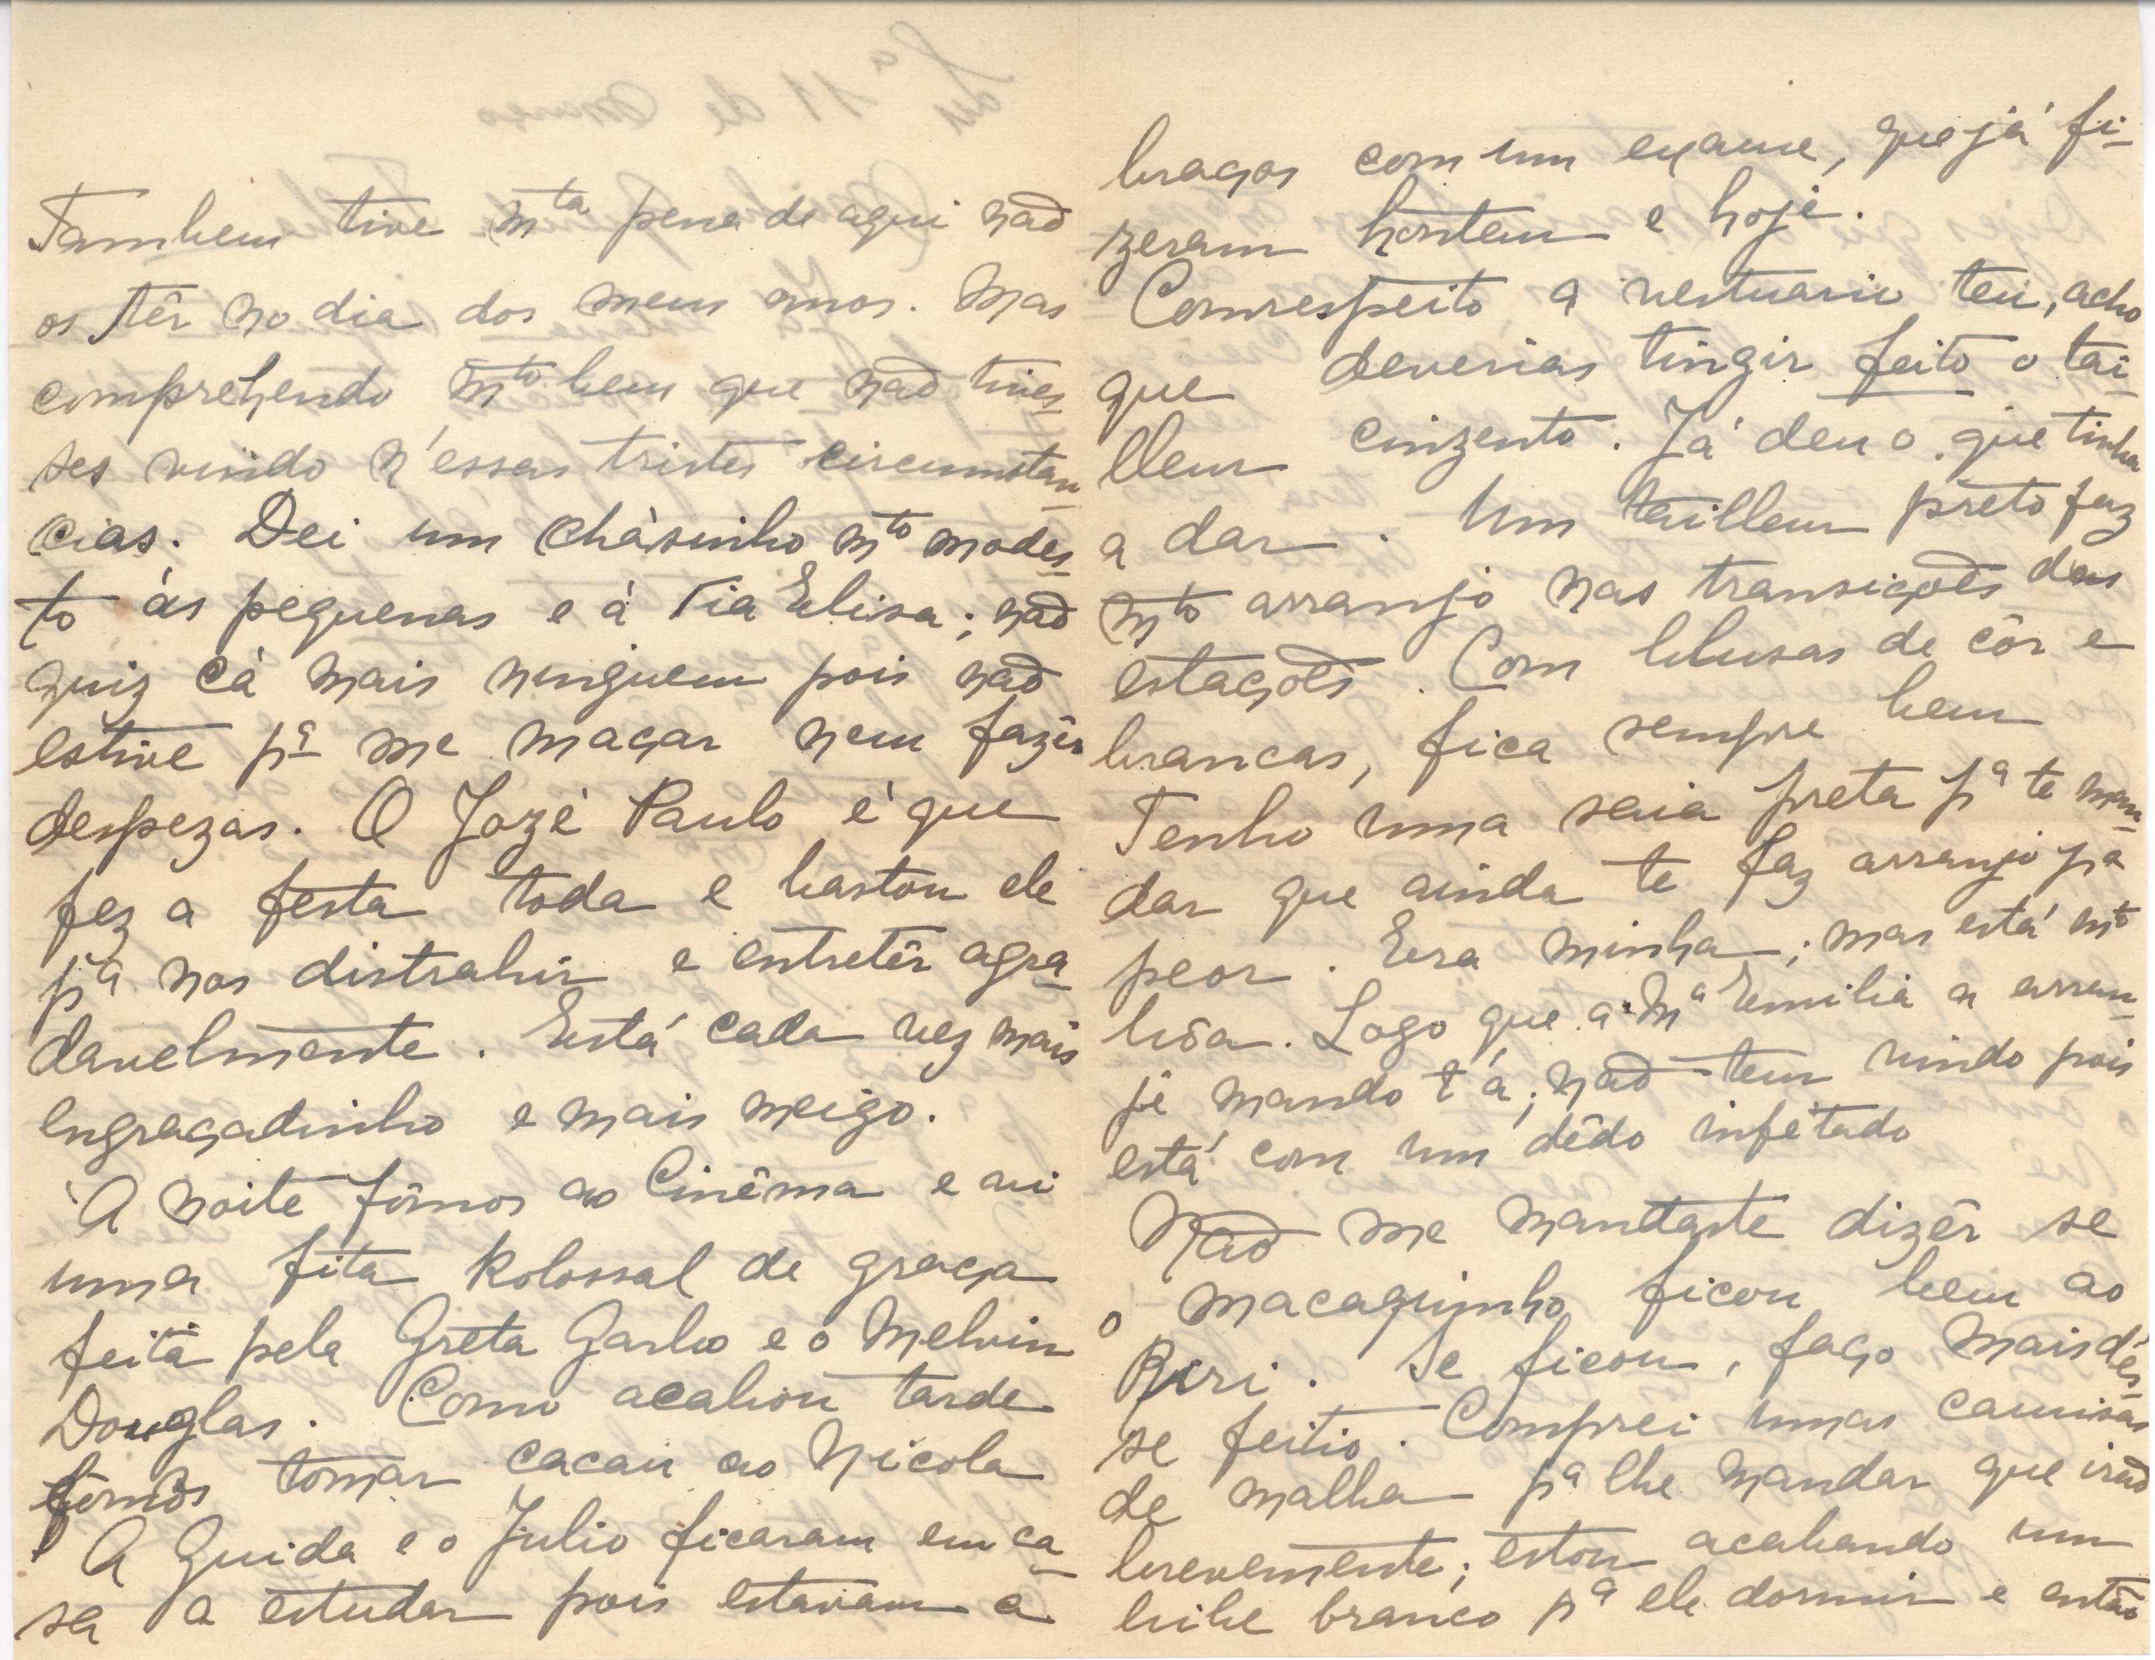 Tambem tive mta pena de aqui não
os têr no dia dos meus anos. Mas
comprehendo mto bem que não tives-
ses vindo n'essas tristes circumstan-
cias. Dei um chàsinho mto modes-
to ás pequenas e á Tia Elisa; não
quiz cá mais ninguem pois não
estive pª me maçar nem fazêr
despezas. O Jozé Paulo é que
fez a festa toda e bastou ele
pª nos distrahir e entretêr agra-
davelmente. Está cada vez mais
engraçadinho e mais meigo.
Á noite fômos ao Cinêma e vi
uma fita kolossal de graça
feita pela Greta Garbo e o Melvin
Douglas. Como acabou tarde
fômos tomar cacau ao Nicola
A Guida e o Julio ficaram em ca-
sa a estudar pois estavam a
braços com um exame, que já fi-
zeram hontem e hoje.
Com respeito a vestuario teu, acho
que deverias tingir feito o tai-
lleur cinzento. Já deu o que tinha
a dar. Um tailleur prêto faz
mto arranjo nas transições das
estações. Com blusas de côr e
brancas, fica sempre bem
Tenho uma saia preta pª te man-
dar que ainda te faz arranjo pª
peor. Era minha; mas está mto
bôa. Logo que a Mª Emilia a arran-
je mando t'a; não tem vindo pois
está com um dêdo infètado
Não me mandaste dizêr se
o macaquinho ficou bem ao
Riri. Se ficou, faço mais dês-
se feitio. Comprei umas camisas
de malha pª lhe mandar que irão
brevemente; estou acabando um
bibe branco pª ele dormir e então